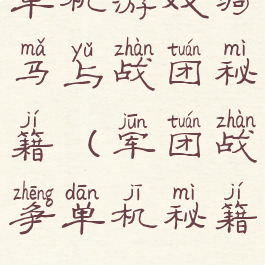 单机游戏骑
mǎ yǔ zhàn tuán mì
马与战团秘
jí jūn tuán zhàn
籍（军团战
zhēng dān jī mì jí
争单机秘籍